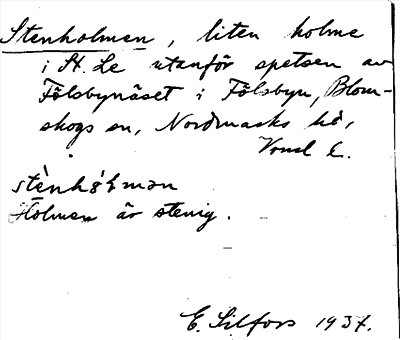 Stenholmen, liten holme
i St. Le utanför spetsen av
Fölsbynäset i Fölsbyn, Blom-
skogs sn, Nordmarks hd,
Värml l.
Holmen är stenig.
E. Silfors 1937.